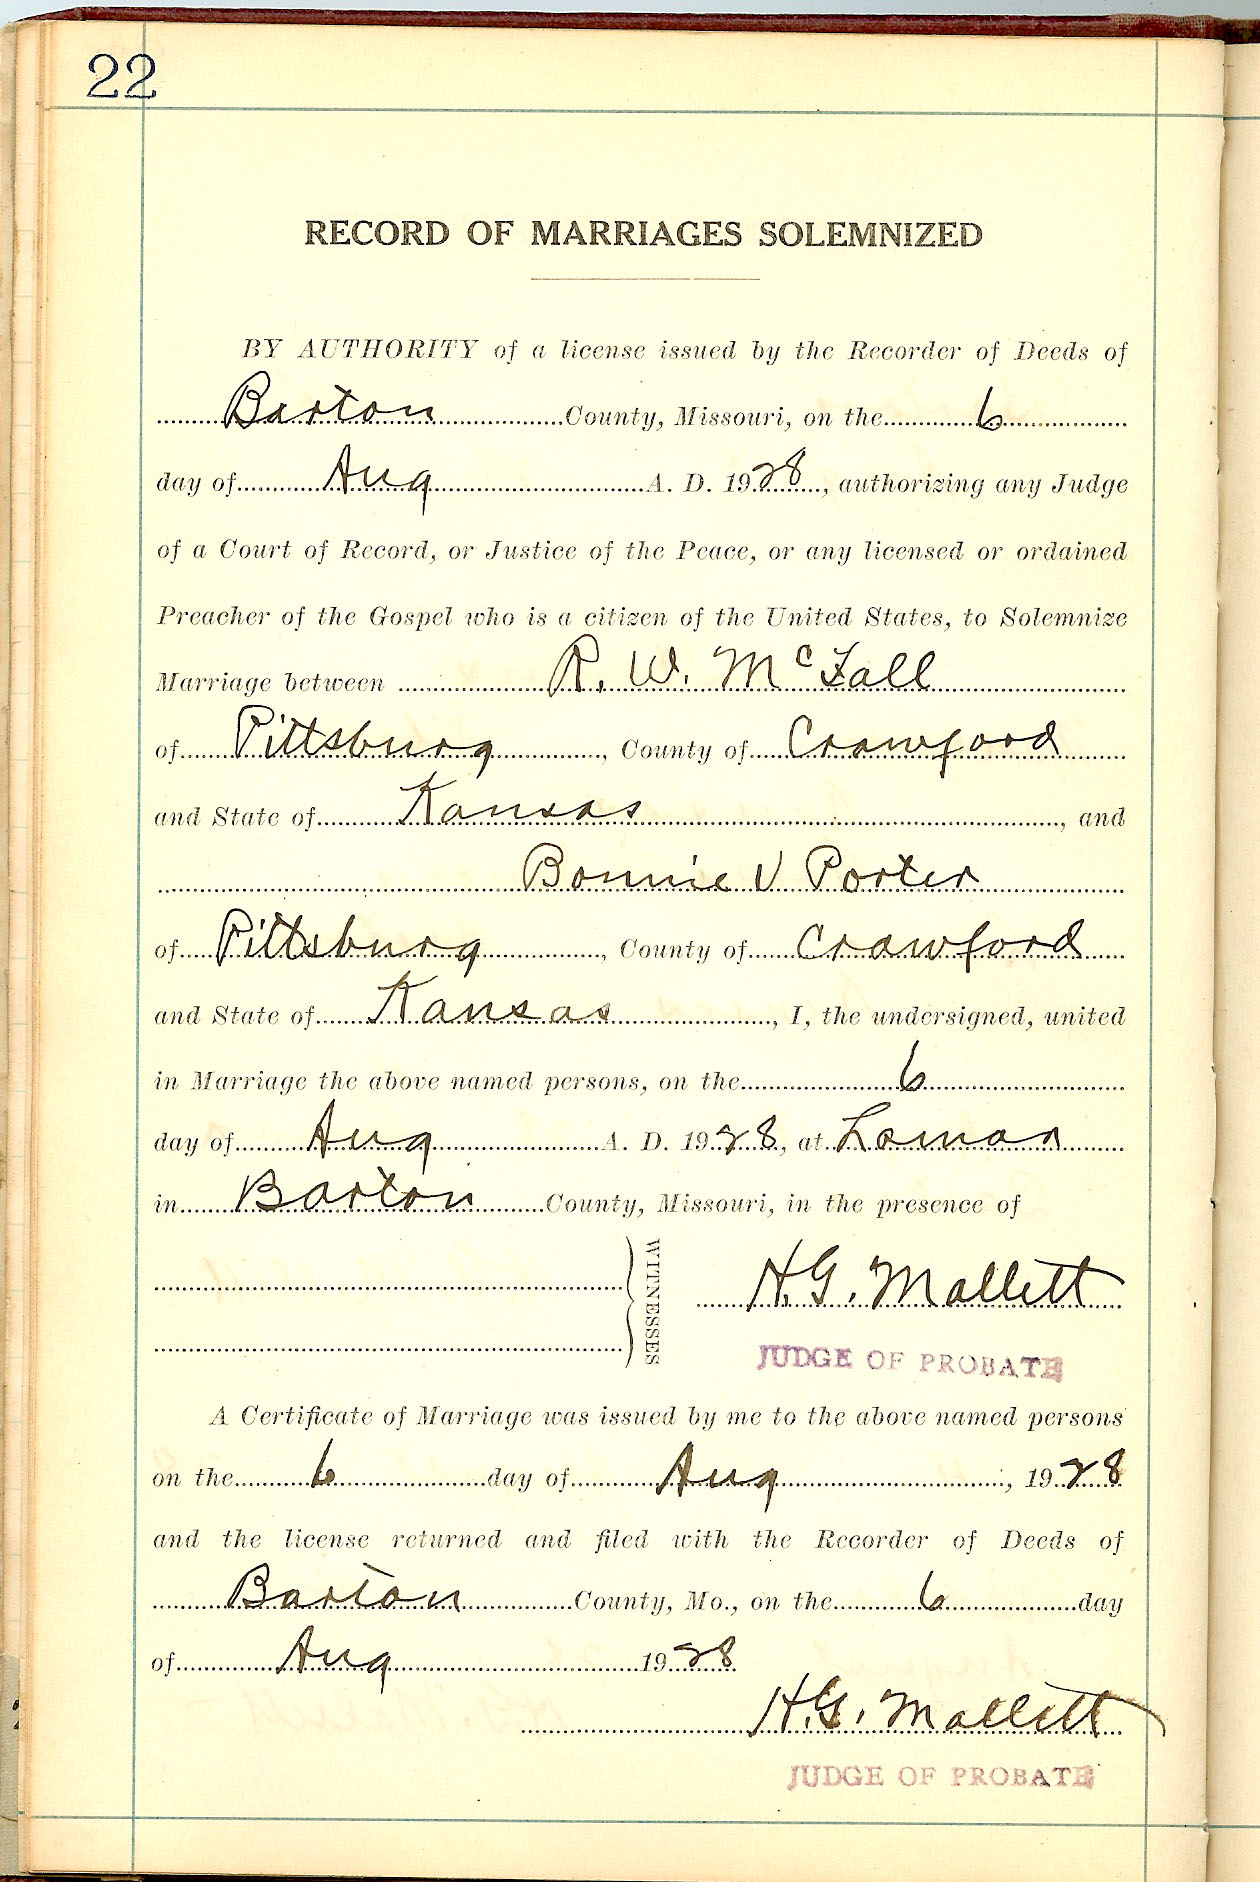 22
RECORD OF MARRIAGES SOLEMNIZED
BY AUTHORITY of a license issued by the Recorder of Deeds of
Barton County, Missouri, on the 6
day of Aug A. D. 1928, authorizing any Judge
of a Court of Record, or Justice of the Peace, or any licensed or ordained
Preacher of the Gospel who is a citizen of the United States, to Solemnize
Marriage between R. W. McFall
of Pittsburg, County of Crawford
and State of Kansas, and
Bonnie V Porter
of Pittsburg, County of Crawford
and State of Kansas, I, the undersigned, united
in Marriage the above named persons, on the 6
day of Aug A. D. 1928, at Lamar
in Barton County, Missouri, in the presence of
WITNESSES
H. G. Mallett
JUDGE OF PROBATE
A Certificate of Marriage was issued by me to the above named persons
on the 6 day of Aug, 1928
and the license returned and filed with the Recorder of Deeds of
Barton County, Mo., on the 6 day
of Aug 1928
H. G. Mallett
JUDGE OF PROBATE